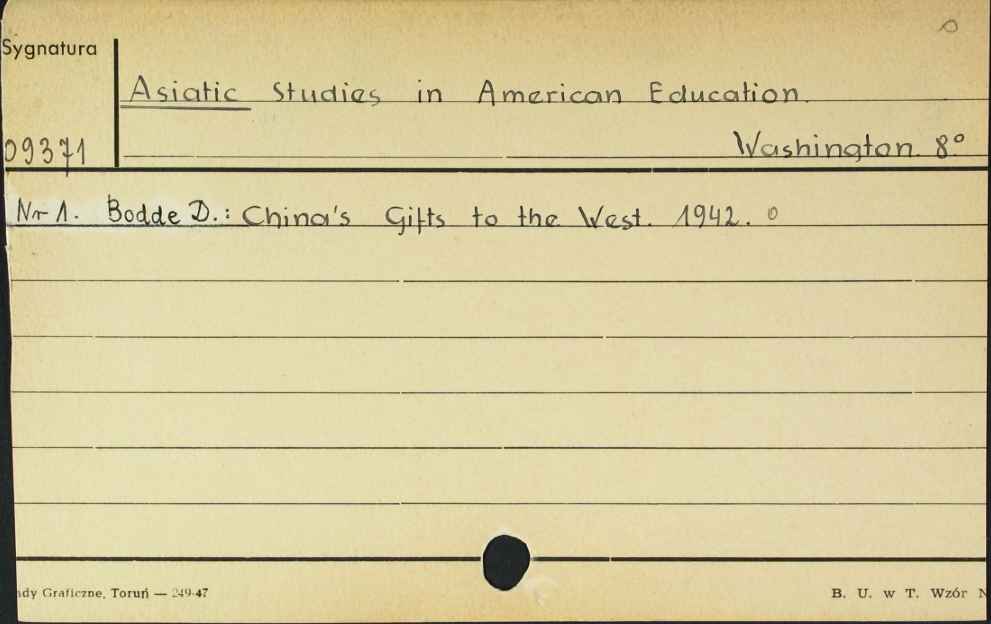 Sygnatura
Asiatic Studies in American Education.
09371
Washington. 8°
Nr 1. Bodde D.: China's Gifts to the West. 1942.
ady Graficzne, Toruń — 249-47
B. U. w T. Wzór N